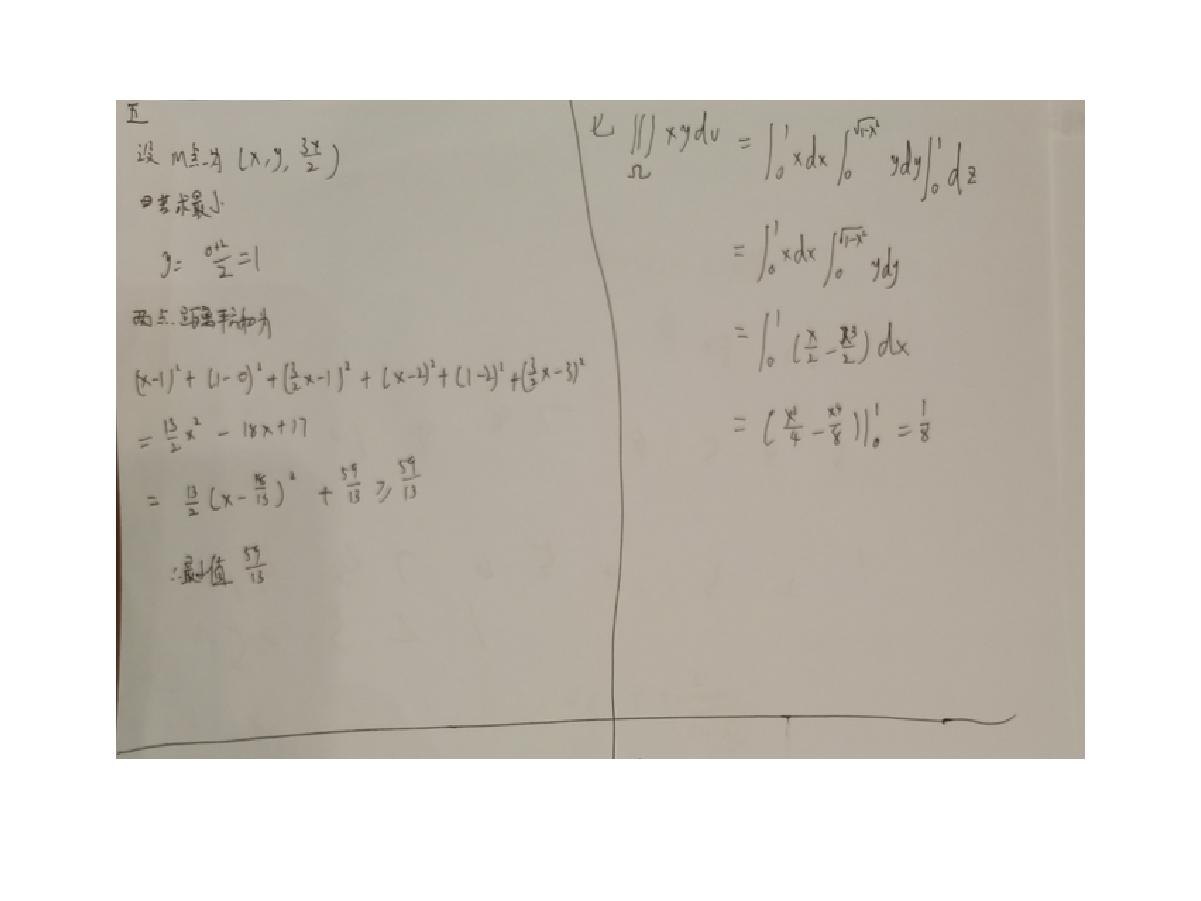 五
设 M点为 (x, y, 3x/2)
若求最小
y = (0+2)/2 = 1
两点距离平方和为
(x-1)² + (1-0)² + (3/2 x-1)² + (x-2)² + (1-2)² + (3/2 x-3)²
= 13/2 x² - 18x+17
= 13/2 (x - 18/13)² + 59/13 ≥ 59/13
∴最小值 59/13
七 ∭_Ω xydv = ∫₀¹ xdx ∫₀^√(1-x²) ydy ∫₀¹ dz
= ∫₀¹ xdx ∫₀^√(1-x²) ydy
= ∫₀¹ (x/2 - x³/2) dx
= (x²/4 - x⁴/8)|₀¹ = 1/8